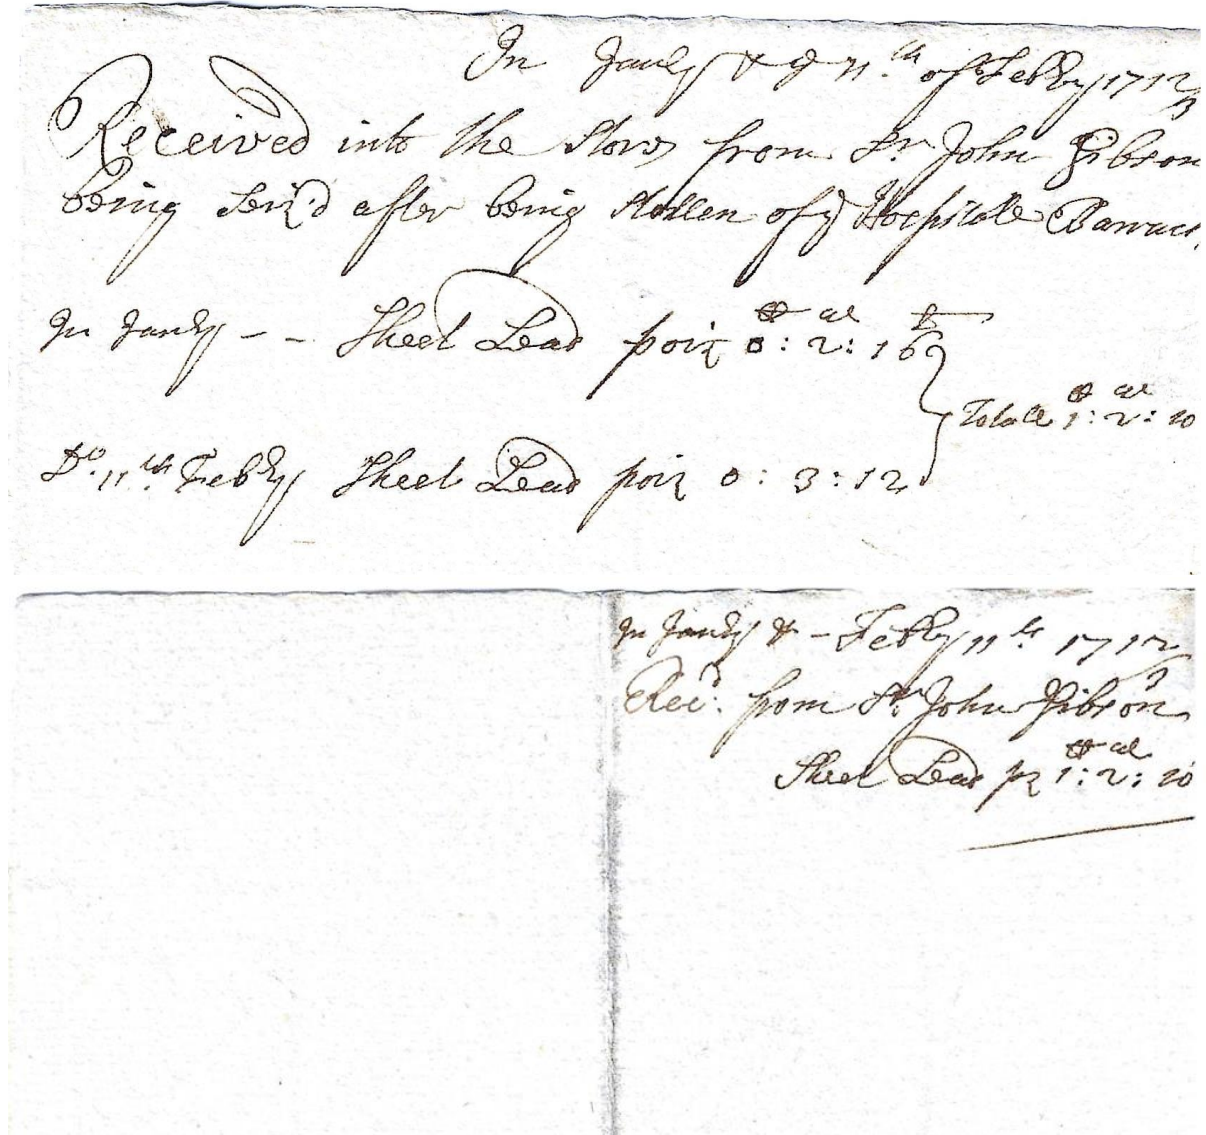 In Janry & ye 11th of Febry 1712/3
Received into the Stores from Sr John Gibson
being Seiz'd after being Stollen of ye Hospitle Barracs
In Janry - - Sheet Lead poiz 0 : 2 : 16
Totall 1 : 2 : 10
Do 11th Febry Sheet Lead poiz 0 : 3 : 12
In Janry & - Febry 11th 1712/3
Recd from Sr John Gibson
Sheet Lead pz 1 : 2 : 10